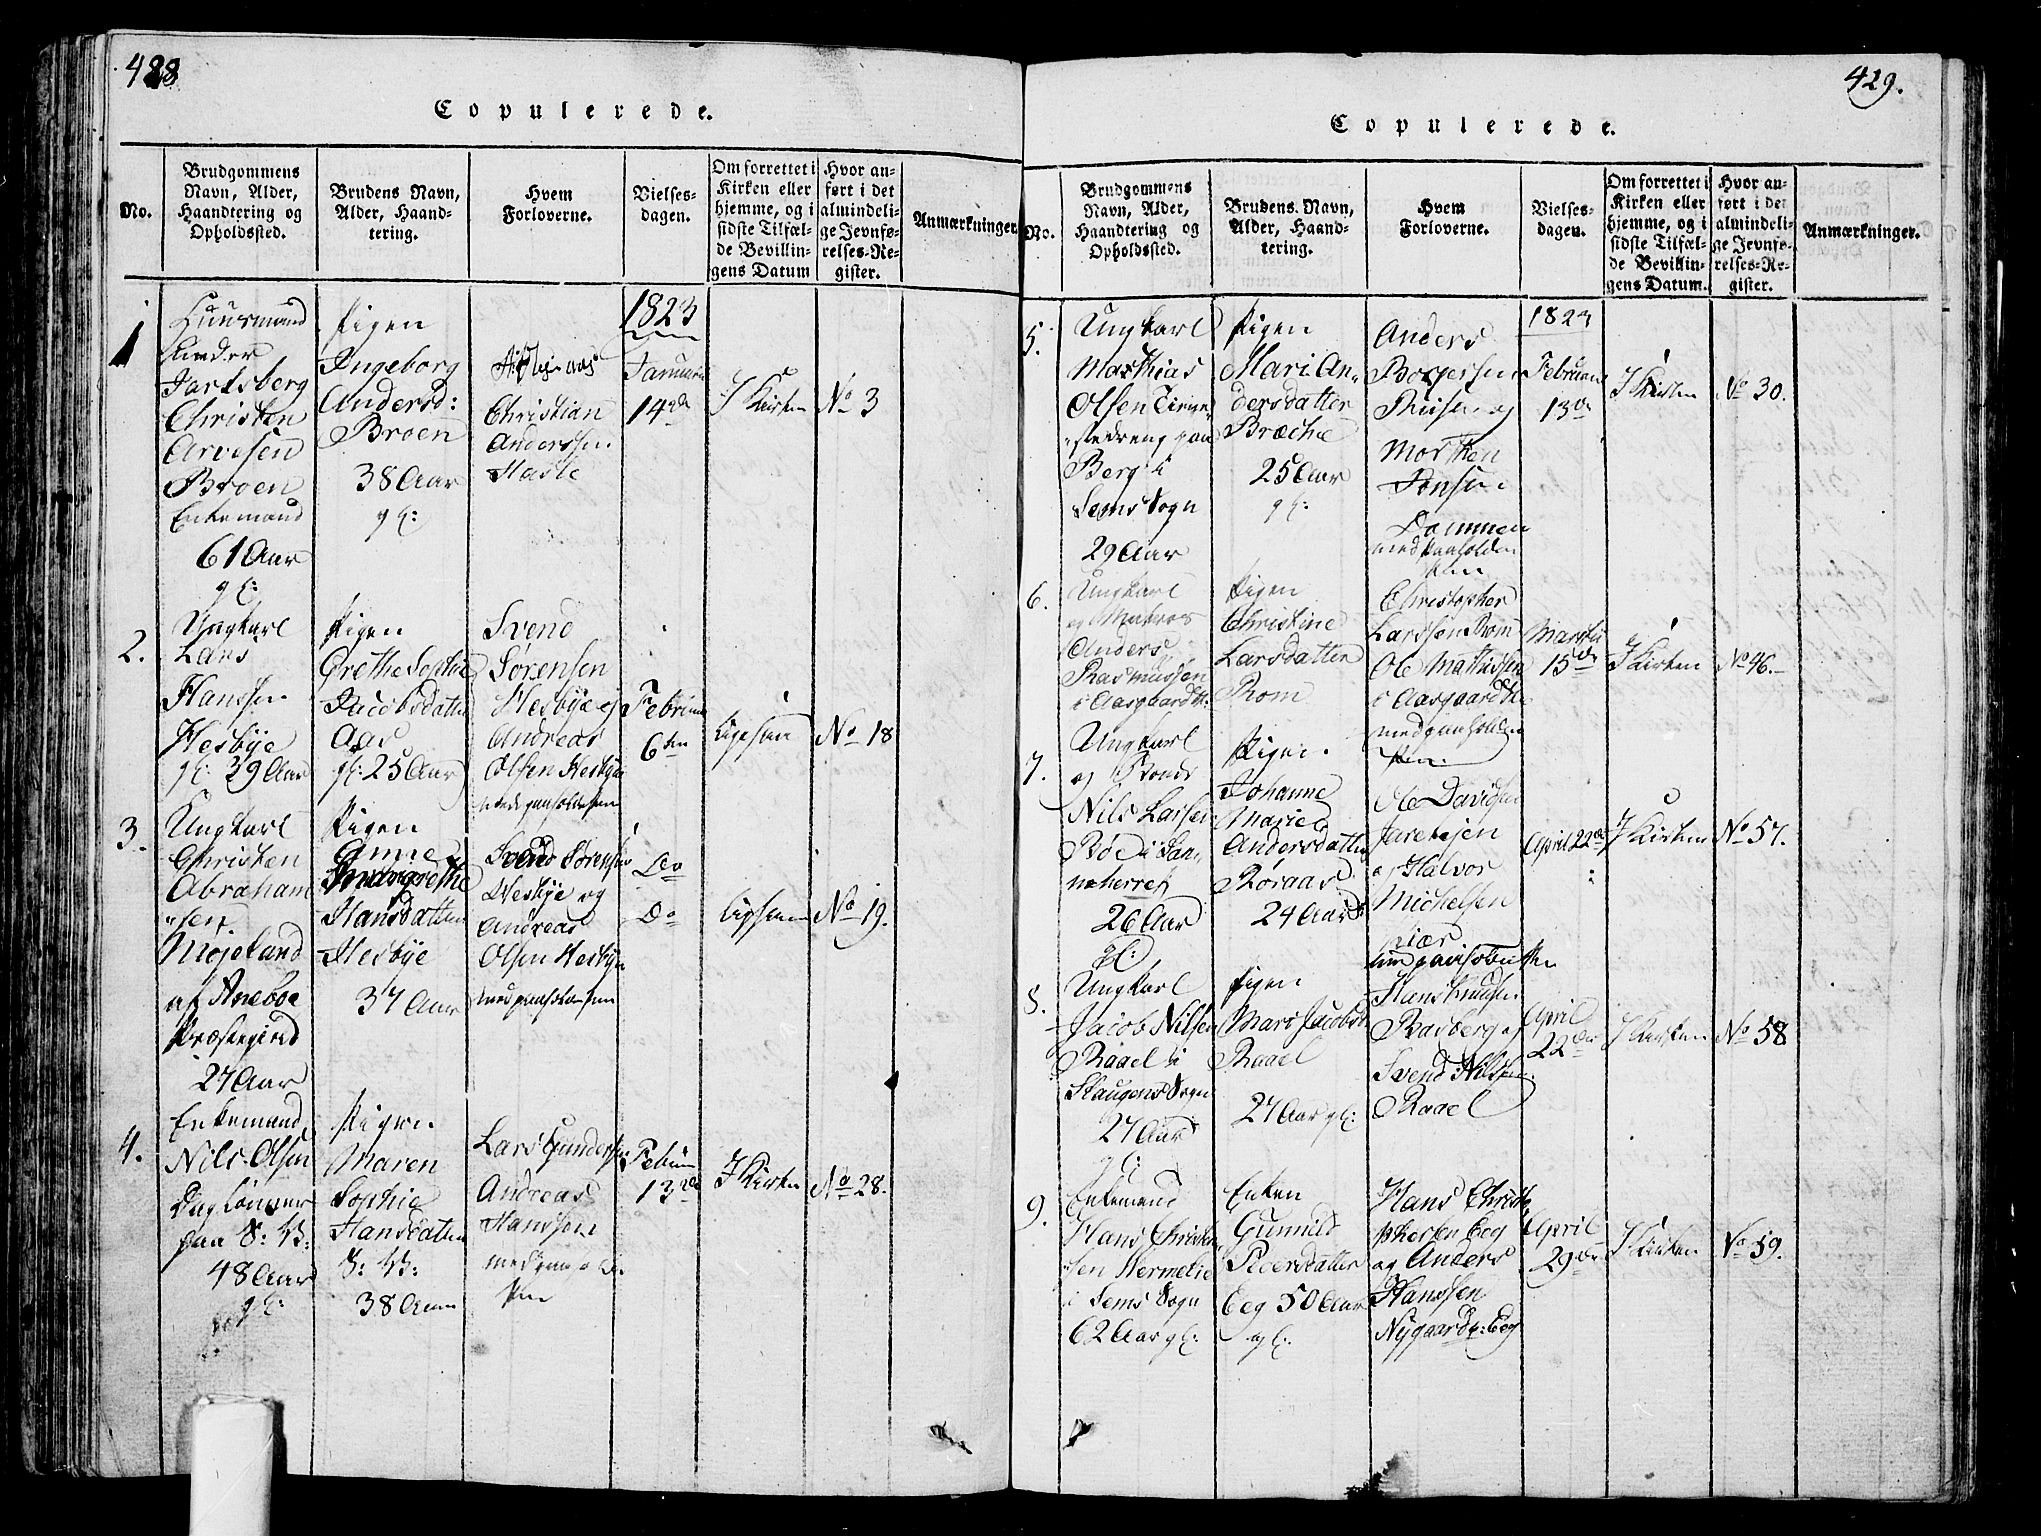 428
Copulerede.
No.
Brudgommens Navn, Alder, Haandtering og Opholdssted.
Brudens Navn, Alder, Haandtering.
Hvem Forloverne.
Vielsesdagen.
Om forrettet i Kirken eller hjemme, og i sidste Tilfælde Bevillingens Datum
Hvor anført i det almindelige Jevnførelses-Register.
Anmærkninger.
1
Huusmand
under
Jarlsberg
Christen
Arvesen
Broen
Enkemand
61 Aar
gl:
Pigen
Ingeborg
Andersd:
Broen
38 Aar
gl:
Christian
Anderssen
Hasle
1823
Januari
14de
I Kirken
No 3
2.
Ungkarl
Lars
Hanssen
Hesbye
gl: 29 Aar
Pigen
Grethe Sophie
Jacobsdatter
Aas
gl: 25 Aar
Svend
Sørensen
Hesbye og
Andreas
Olsen Hesbye
med paaholden Pen
Februar
6ten
Ligesaa
No 18
3.
Ungkarl
Christen
Abraham
sen
Møjeland
af Aneboe
Præstegjeld
27 Aar
Pigen
Anne
Margrethe
Hansdatter
Hesbye
37 Aar
Svend Sørensen
Hesbye og
Andreas
Olsen Hesbye
med paaholden Pen
Do
Do
Ligesaa
No 19.
4.
Enkemand
Nils Olsen
Daglønner
paa S: W:
48 Aar
gl:
Pigen
Maren
Sophie
Hansdatter
S: W:
38 Aar
Lars Gundersen
Andreas
Hanssen
med paaholden
Pen
Februar
13de
I Kirken
No 28.
429.
Copulerede.
No.
Brudgommens Navn, Alder, Haandtering og Opholdssted.
Brudens Navn, Alder, Haandtering.
Hvem Forloverne.
Vielsesdagen.
Om forrettet i Kirken eller hjemme, og i sidste Tilfælde Bevillingens Datum.
Hvor anført i det almindelige Jevnførelses-Register.
Anmærkninger.
5.
Ungkarl
Matthias
Olsen Tiene
stedreng paa
Berg i
Sems Sogn
29 Aar
Pigen
Mari An
dersdatter
Bræche
25 Aar
gl:
Anders
Borgersen
og
Morthen
Jonsen
Dammen
med paaholden
Pen
1823
Februar
13de
I Kirken
No 30.
6.
Ungkarl
og Matros
Anders
Rasmussen
i Aasgaardst:
Pigen
Christine
Larsdatter
Rom
Christopher
Larssen Rom
Ole Mathissen
i Aasgaardst:
med paaholden
Pen
Martii
15de
I Kirken
No 46.
7.
Ungkarl
og Bonde
Nils Larsen
Bøe i San
neherret
26 Aar
gl:
Pigen
Johanne
Marie
Andersdatter
Røraas
24 Aar
Ole Davidsen
Jaretejen
og Halvor
Michelsen
med paaholden Pen
April 22de
I Kirken
No 57.
8.
Ungkarl
Jacob Nilsen
Raael i
Slaugens Sogn
27 Aar
gl:
Pigen
Mari Jacobsd
Raael
27 Aar gl:
Hans Knudsen
Basberg og
Svend Nilsen
Raael
April
22de
I Kirken
No 58
9.
Enkemand
Hans Christen
sen Hermelie
i Sems Sogn
62 Aar gl:
Enken
Gunnild
Pedersdatter
Eeg 50 Aar
gl:
Hans Christo
phersen Eeg
og Anders
Hanssen
Nygaard p: Eeg
April
29de
I Kirken
No 59.